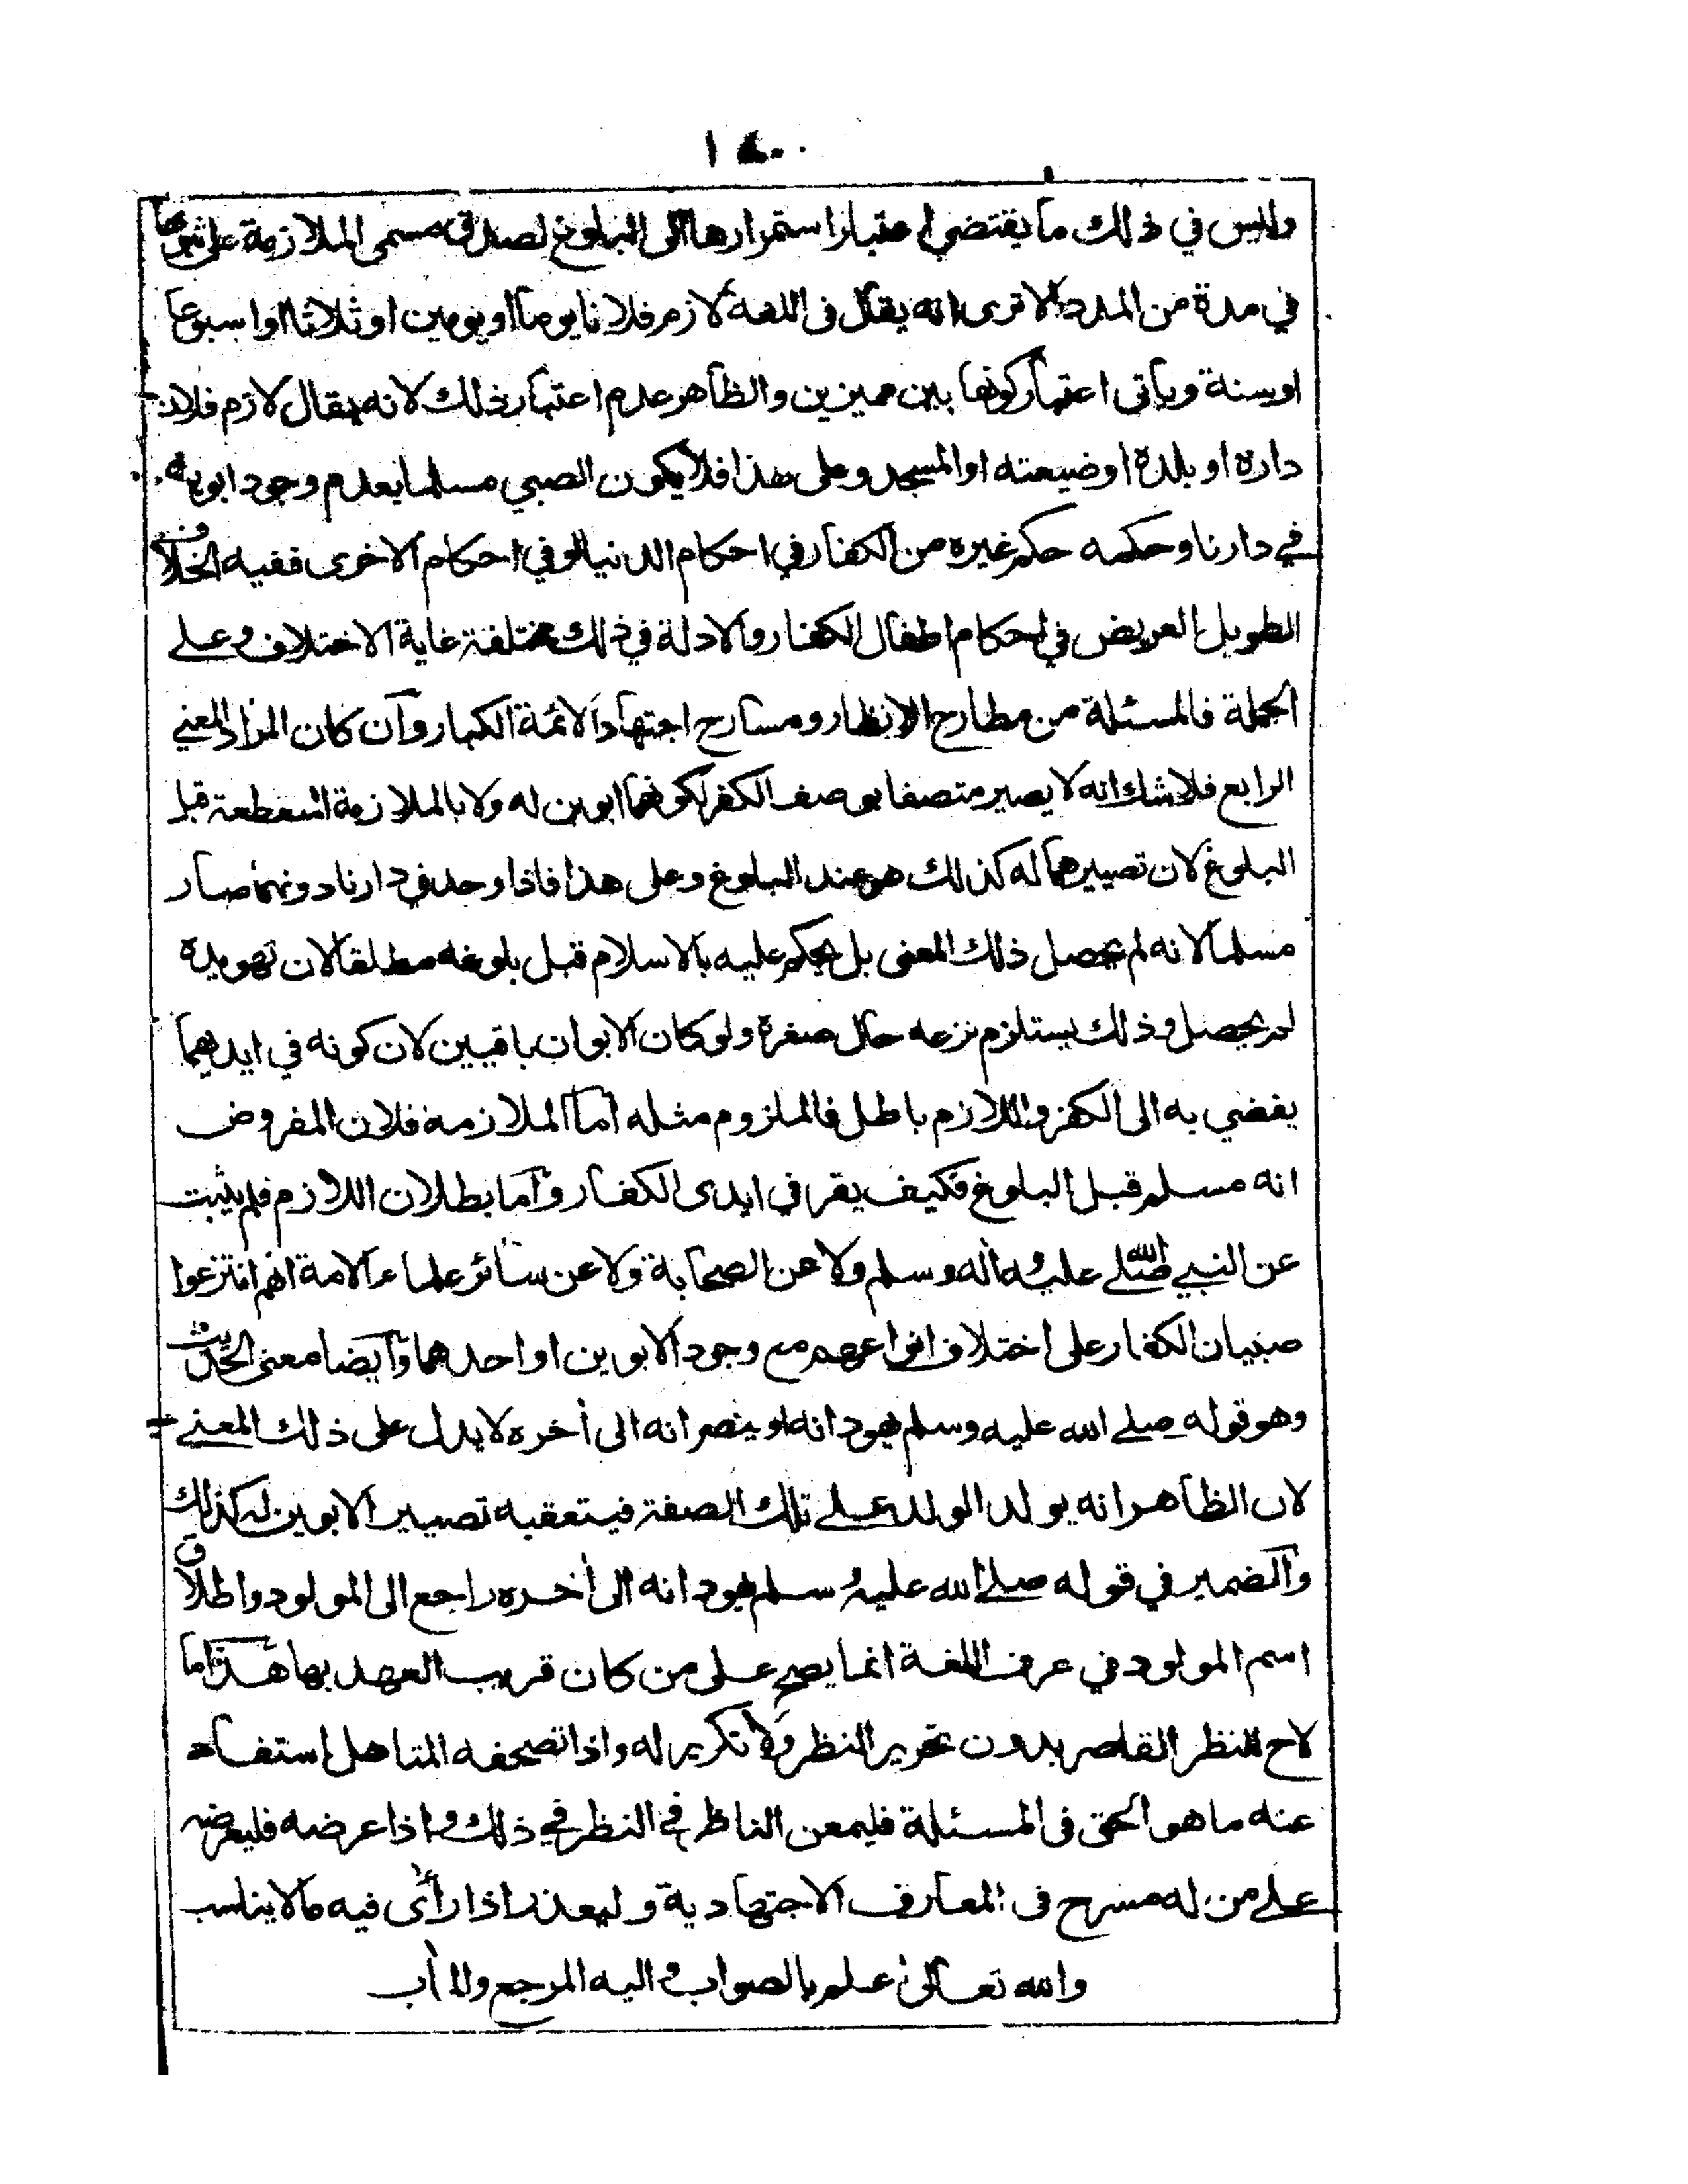 وليس في ذلك ما يقتضي اعتبار استمرارها الى البلوغ لصدق مسمى الملازمة على ثبوتها
في مدة من المدد الا ترى انه يقال فى اللغة لازم فلانا يوما او يومين او ثلاثا او اسبوعا
او سنة وياتى اعتبار كونها بين مميزين والظاهر عدم اعتبار ذلك لانه يقال لازم فلان
داره او بلدة او ضيعته او المسجد وعلى هذا فلا يكون الصبي مسلما بعدم وجود ابويه
في دارنا وحكمه حكم غيره من الكفار في احكام الدنيا او في احكام الاخرى ففيه الخلاف
الطويل العريض في احكام اطفال الكفار والادلة في ذلك مختلفة غاية الاختلاف وعلى
الجملة فالمسئلة من مطارح الانظار ومسارح اجتهاد الائمة الكبار وان كان المراد المعنى
الرابع فلا شك انه لا يصير متصفا بوصف الكفر لكونهما ابوين له ولا بالملازمة المنقطعة قبل
البلوغ لان تصييرهما له كذلك هو عند البلوغ وعلى هذا فاذا وجد في دارنا دونهما صار
مسلما لانه لم يحصل ذلك المعنى بل يحكم عليه بالاسلام قبل بلوغه مطلقا لان تهويده
لم يحصل وذلك يستلزم نزعه حال صغره ولو كان الابوان باقيين لان كونه في ايديهما
يفضي به الى الكفر واللازم باطل فالملزوم مثله اما الملازمة فلان المفروض
انه مسلم قبل البلوغ فكيف يقر في ايدى الكفار واما بطلان اللازم فلم يثبت
عن النبي صلى الله عليه واله وسلم ولا عن الصحابة ولا عن سائر علماء الامة انهم انتزعوا
صبيان الكفار على اختلاف انواعهم مع وجود الابوين او احدهما وايضا معنى الحديث
وهو قوله صلى الله عليه وسلم يهودانه او ينصرانه الى أخره لا يدل على ذلك المعنى
لان الظاهر انه يولد الولد على تلك الصفة فيتعقبه تصيير الابوين له كذلك
والضمير في قوله صلى الله عليه وسلم يهودانه الى أخره راجع الى المولود واطلاق
اسم المولود في عرف اللغة انما يصح على من كان قريب العهد بها هذا ما
لاح للنظر القاصر بدون تحرير النظر ولا تكرير له واذا تصحفه المتاهل استفاد
عنه ما هو الحق فى المسئلة فليمعن الناظر في النظر في ذلك واذا عرضه فليعرضه
على من له مسرح فى المعارف الاجتهادية وليعذر اذا رأى فيه مالا يناسب
والله تعالى اعلم بالصواب واليه المرجع والمأب